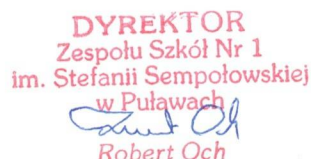 DYREKTOR
Zespołu Szkół Nr 1
im. Stefanii Sempołowskiej
w Puławach
Robert Och